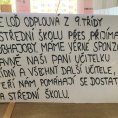 LOĎ ODPLOUVÁ Z 9. TŘÍDY
STŘEDNÍ ŠKOLU PŘES PŘIJÍMA
MÁME VĚRNÉ SPONZ
NAŠI PANÍ UČITELKU
A VŠECHNY DALŠÍ UČITELE,
NÁM POMÁHAJÍ SE DOSTAT
STŘEDNÍ ŠKOLU.